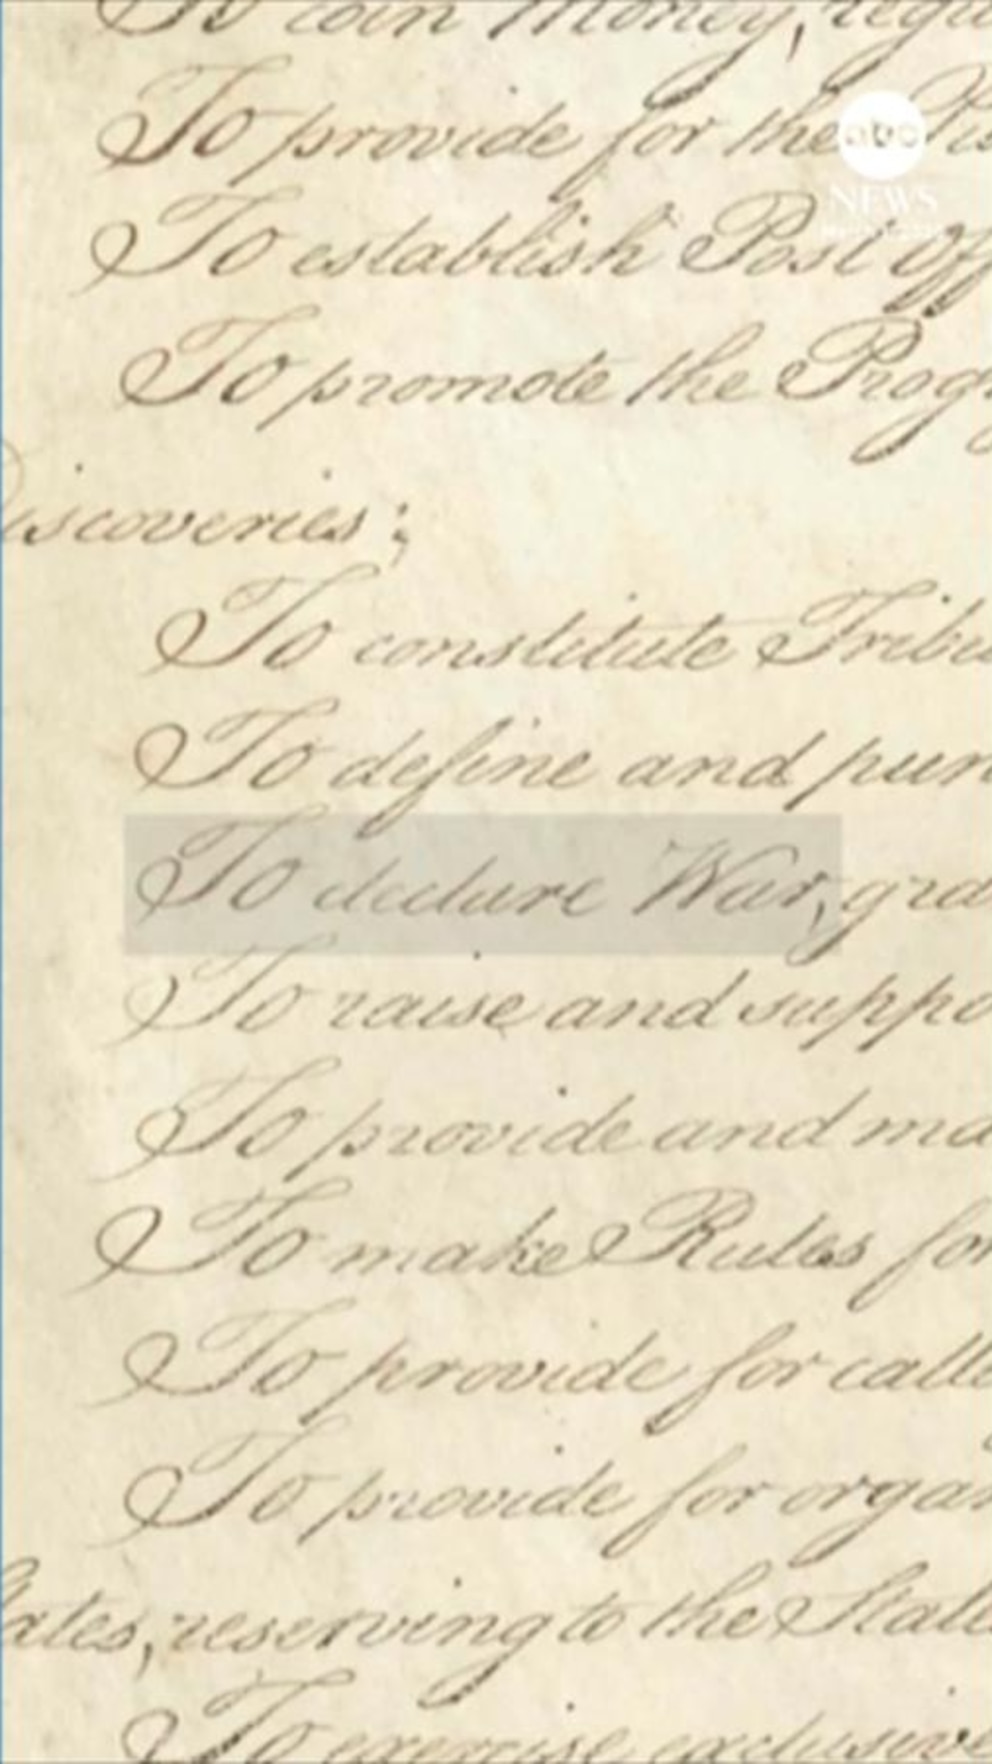 To coin Money, regu
To provide for the
abc
NEWS
To establish Post Off
To promote the Progr
iscoveries;
To constitute Tribu
To define and pun
To declare War, gra
To raise and suppo
To provide and ma
To make Rules for
To provide for calli
To provide for organ
tates, reserving to the State
To exercise exclusive